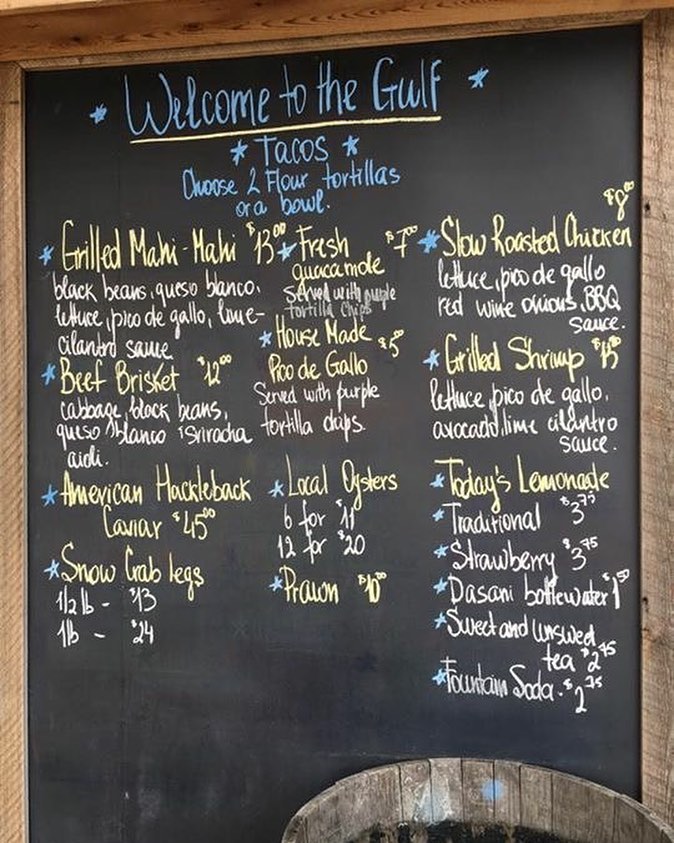 Welcome to the Gulf
Tacos
Choose 2 Flour tortillas
or a bowl.
Grilled Mahi-Mahi $13.00
black beans, queso blanco,
lettuce, pico de gallo, lime-
cilantro sauce
Beef Brisket $12.00
cabbage, black beans,
queso blanco, sriracha
aioli.
American Hackleback
Caviar $45.00
Snow Crab legs
1/2 lb - $13
1lb - $24
Fresh $7.00
guacamole
Served with purple
tortilla chips
House Made
Pico de Gallo $5.00
Served with purple
tortilla chips.
Local Oysters
6 for $11
12 for $20
Prawn $10.00
$8.00
Slow Roasted Chicken
lettuce, pico de gallo
red wine onions, BBQ
sauce.
Grilled Shrimp
lettuce, pico de gallo,
avocado, lime cilantro
sauce.
Today's Lemonade
Traditional $3.75
Strawberry $3.75
Dasani bottlewater $1.50
Sweet and unswed
tea $2.75
Fountain Soda - $2.75